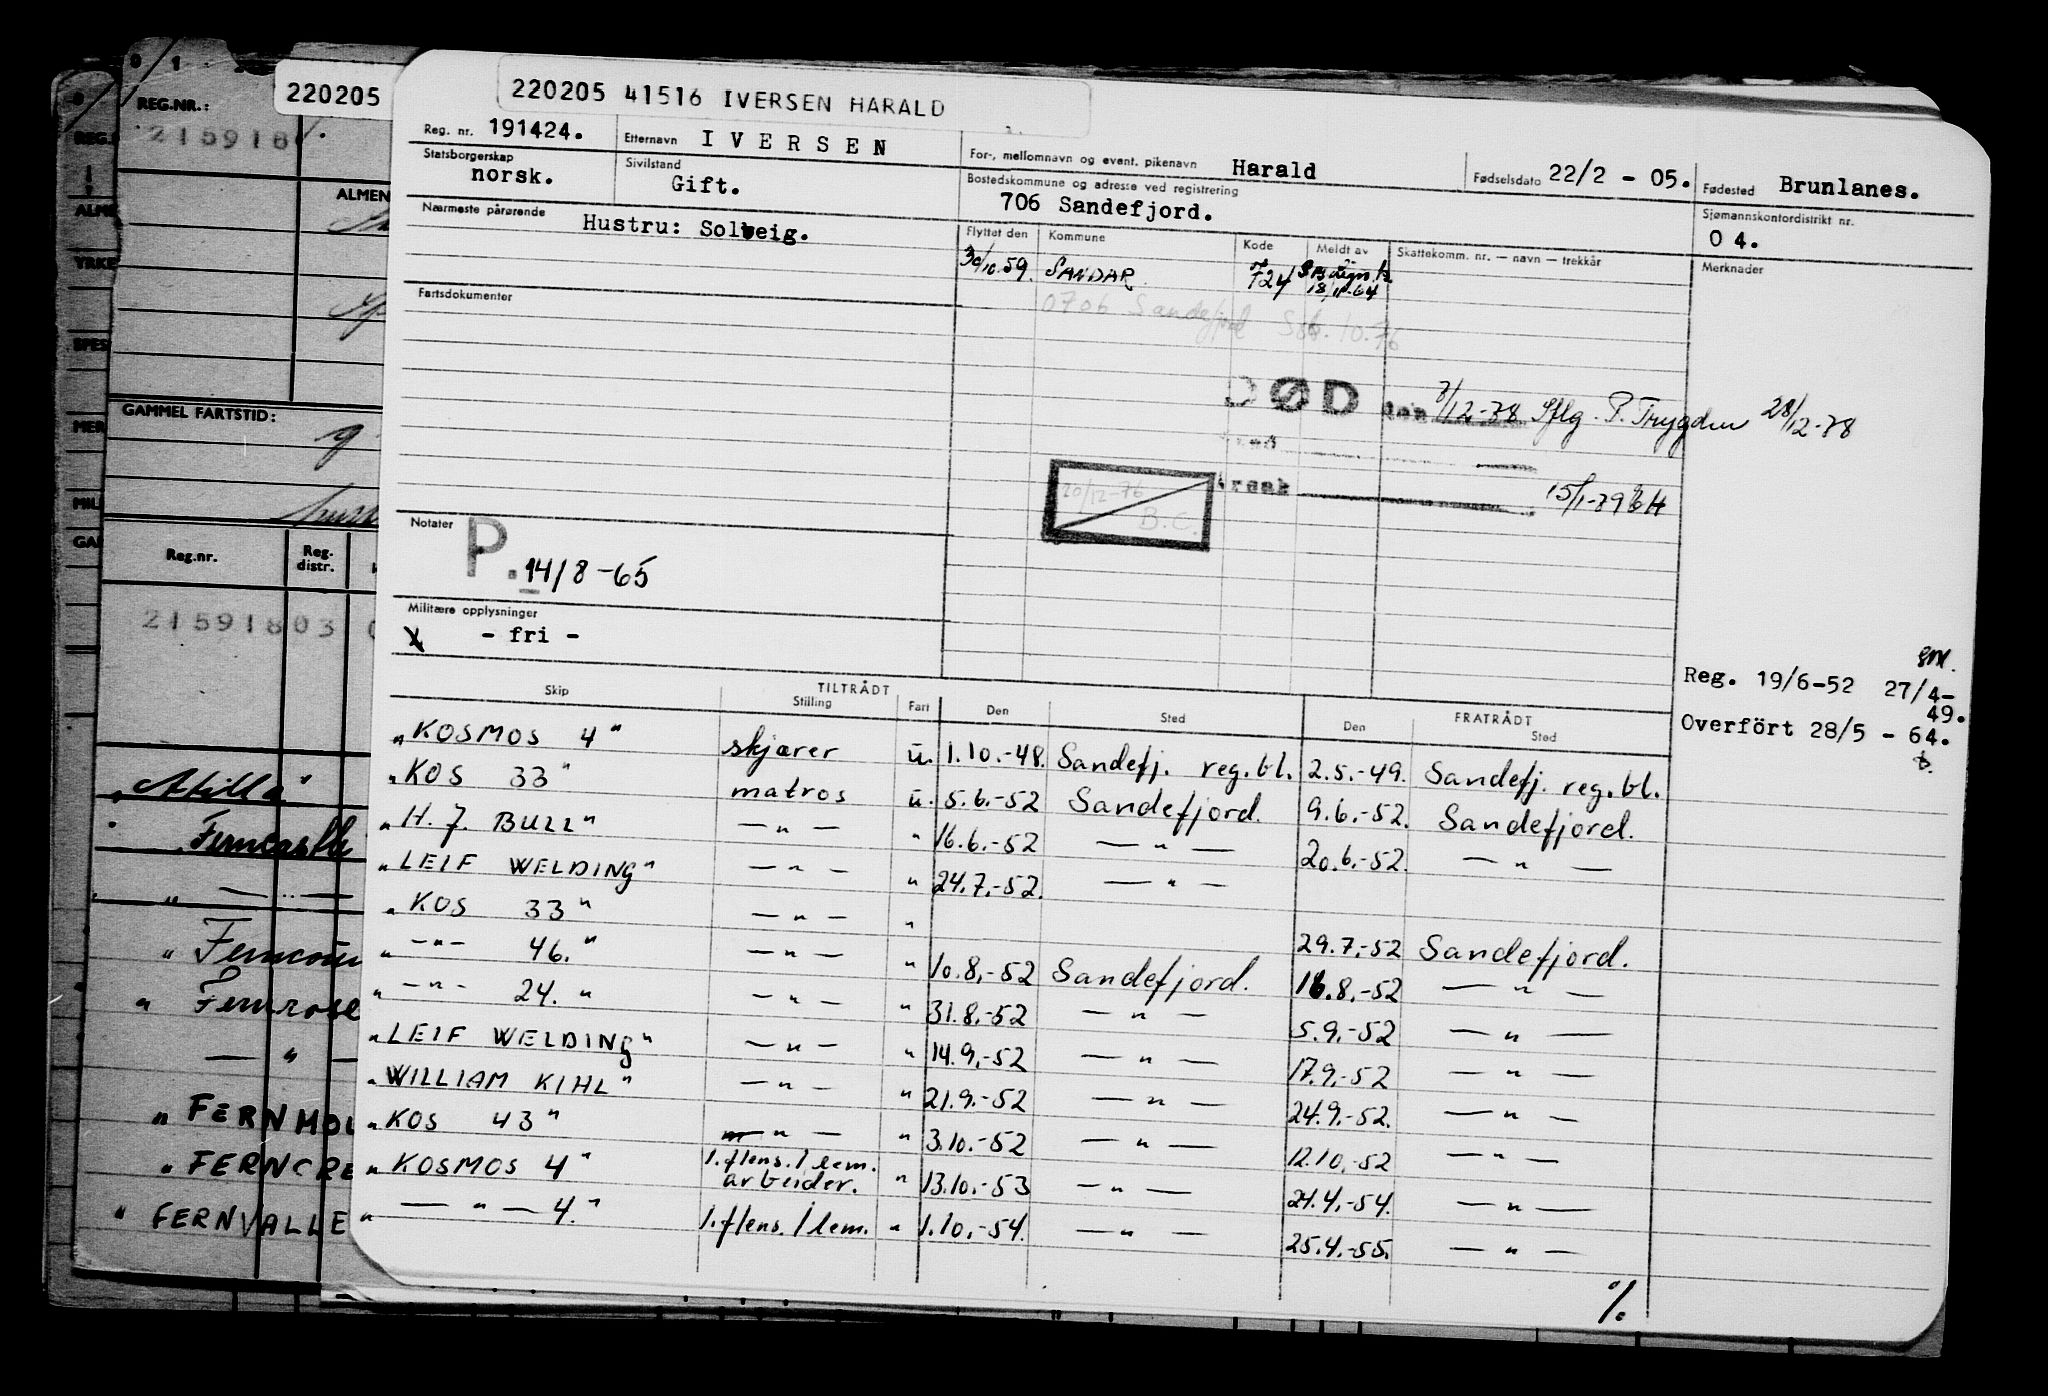 220205 41516 IVERSEN HARALD
Reg. nr. 191424. Etternavn IVERSEN For-, mellomnavn og event. pikenavn Harald Fødselsdato 22/2 - 05. Fødested Brunlanes.
Statsborgerskap norsk. Sivilstand Gift. Bostedskommune og adresse ved registrering 706 Sandefjord. Sjømannskontordistrikt nr. 04.
Nærmeste pårørende Hustru: Solveig.
Flyttet den Kommune Kode Meldt av Skattekomm. nr. — navn — trekkår Merknader
30/10.59. SANDAR 724 18/11-64
0706 Sandefjord 10.76
Fartsdokumenter
DØD den 7/12-78 Sflg. P. Trygden 28/12-78
Sted
Årsak 15/1-79
20/12-76
B.C.
Notater P. 14/8-65
Militære opplysninger
X - fri -
Reg. 19/6-52 27/4-49.
Overfört 28/5 - 64.
TILTRÅDT FRATRÅDT
Skip Stilling Fart Den Sted Den Sted
"KOSMOS 4" skjærer u. 1.10.-48. Sandefj. reg.bl. 2.5.-49. Sandefj. reg.bl.
"KOS 33" matros u. 5.6.-52 Sandefjord. 9.6.-52. Sandefjord.
"H. J. BULL" — " — " 16.6.-52 — " — 20.6.-52. — " —
"LEIF WELDING" — " — " 24.7.-52. — " —
"KOS 33" — " — " 29.7.-52 Sandefjord.
" — " — 46." — " — " 10.8.-52 Sandefjord. 16.8.-52 — " —
" — " — 24." — " — " 31.8.-52 — " — 5.9.-52 — " —
"LEIF WELDING" — " — " 14.9.-52 — " — 17.9.-52 — " —
"WILLIAM KIHL" — " — " 21.9.-52 — " — 24.9.-52. — " —
"KOS 43" — " — " 3.10.-52 — " — 12.10.-52 — " —
"KOSMOS 4" 1.flens./lem. arbeider. " 13.10.-53 — " — 24.4.-54. — " —
" — " — 4." 1.flens./lem. " 1.10.-54. — " — 25.4.-55. — " —
%
220205
REG.NR.:
2159180
ALMEN
GAMMEL FARTSTID:
Reg.nr. Reg. distr.
21591803
"Atilla"
Ferncastle
" — " —
" Ferncour
" Fernrose
— " —
" FERNMOL
" FERNCRE
" FERNVALLE
REG.
ALME
YRKE
SPES
MER
MILI
GAM